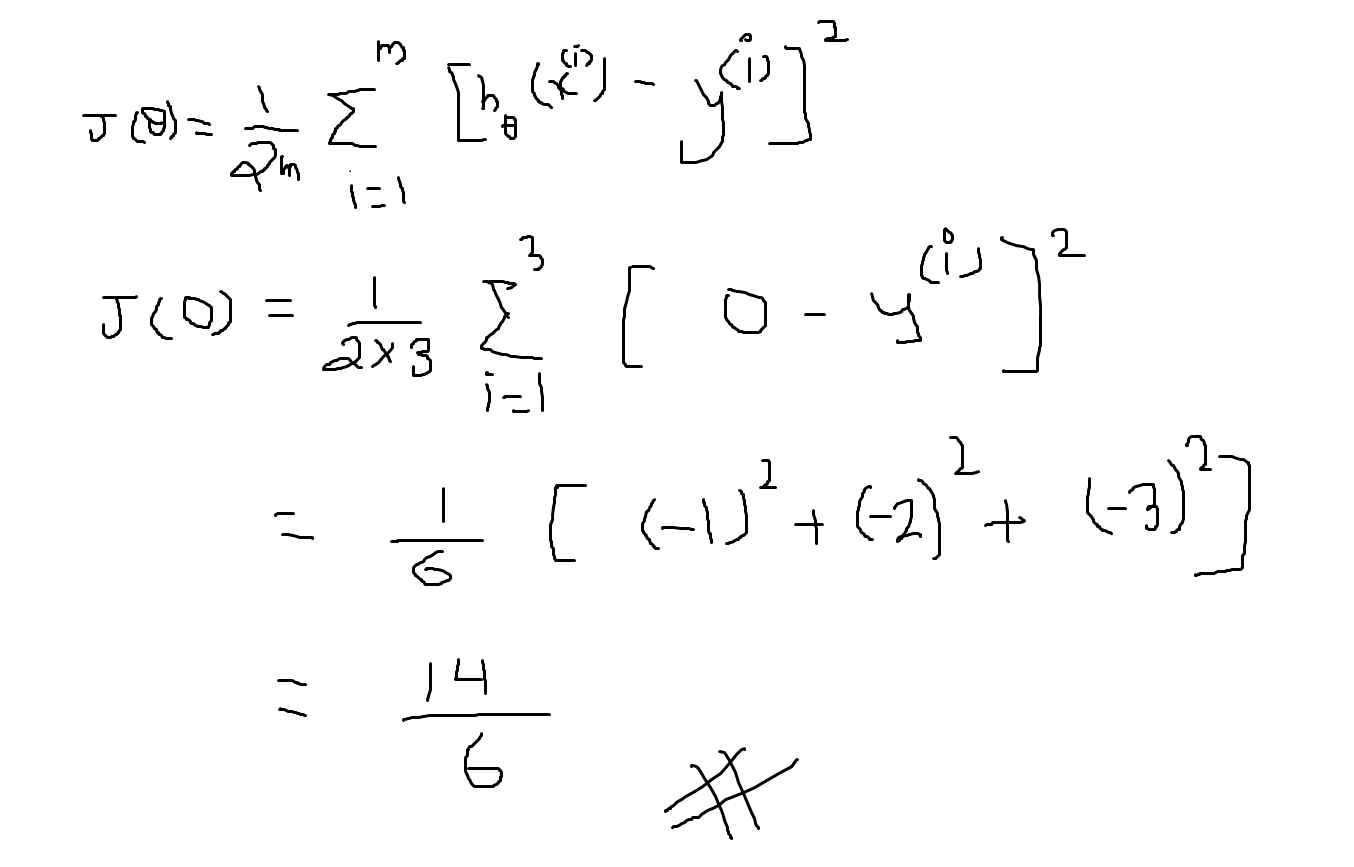 J(θ) = 1/2m ∑_{i=1}^{m} [h_θ(x^{(i)}) - y^{(i)}]^2
J(0) = 1/2×3 ∑_{i=1}^{3} [0 - y^{(i)}]^2
= 1/6 [(-1)^2 + (-2)^2 + (-3)^2]
= 14/6 #